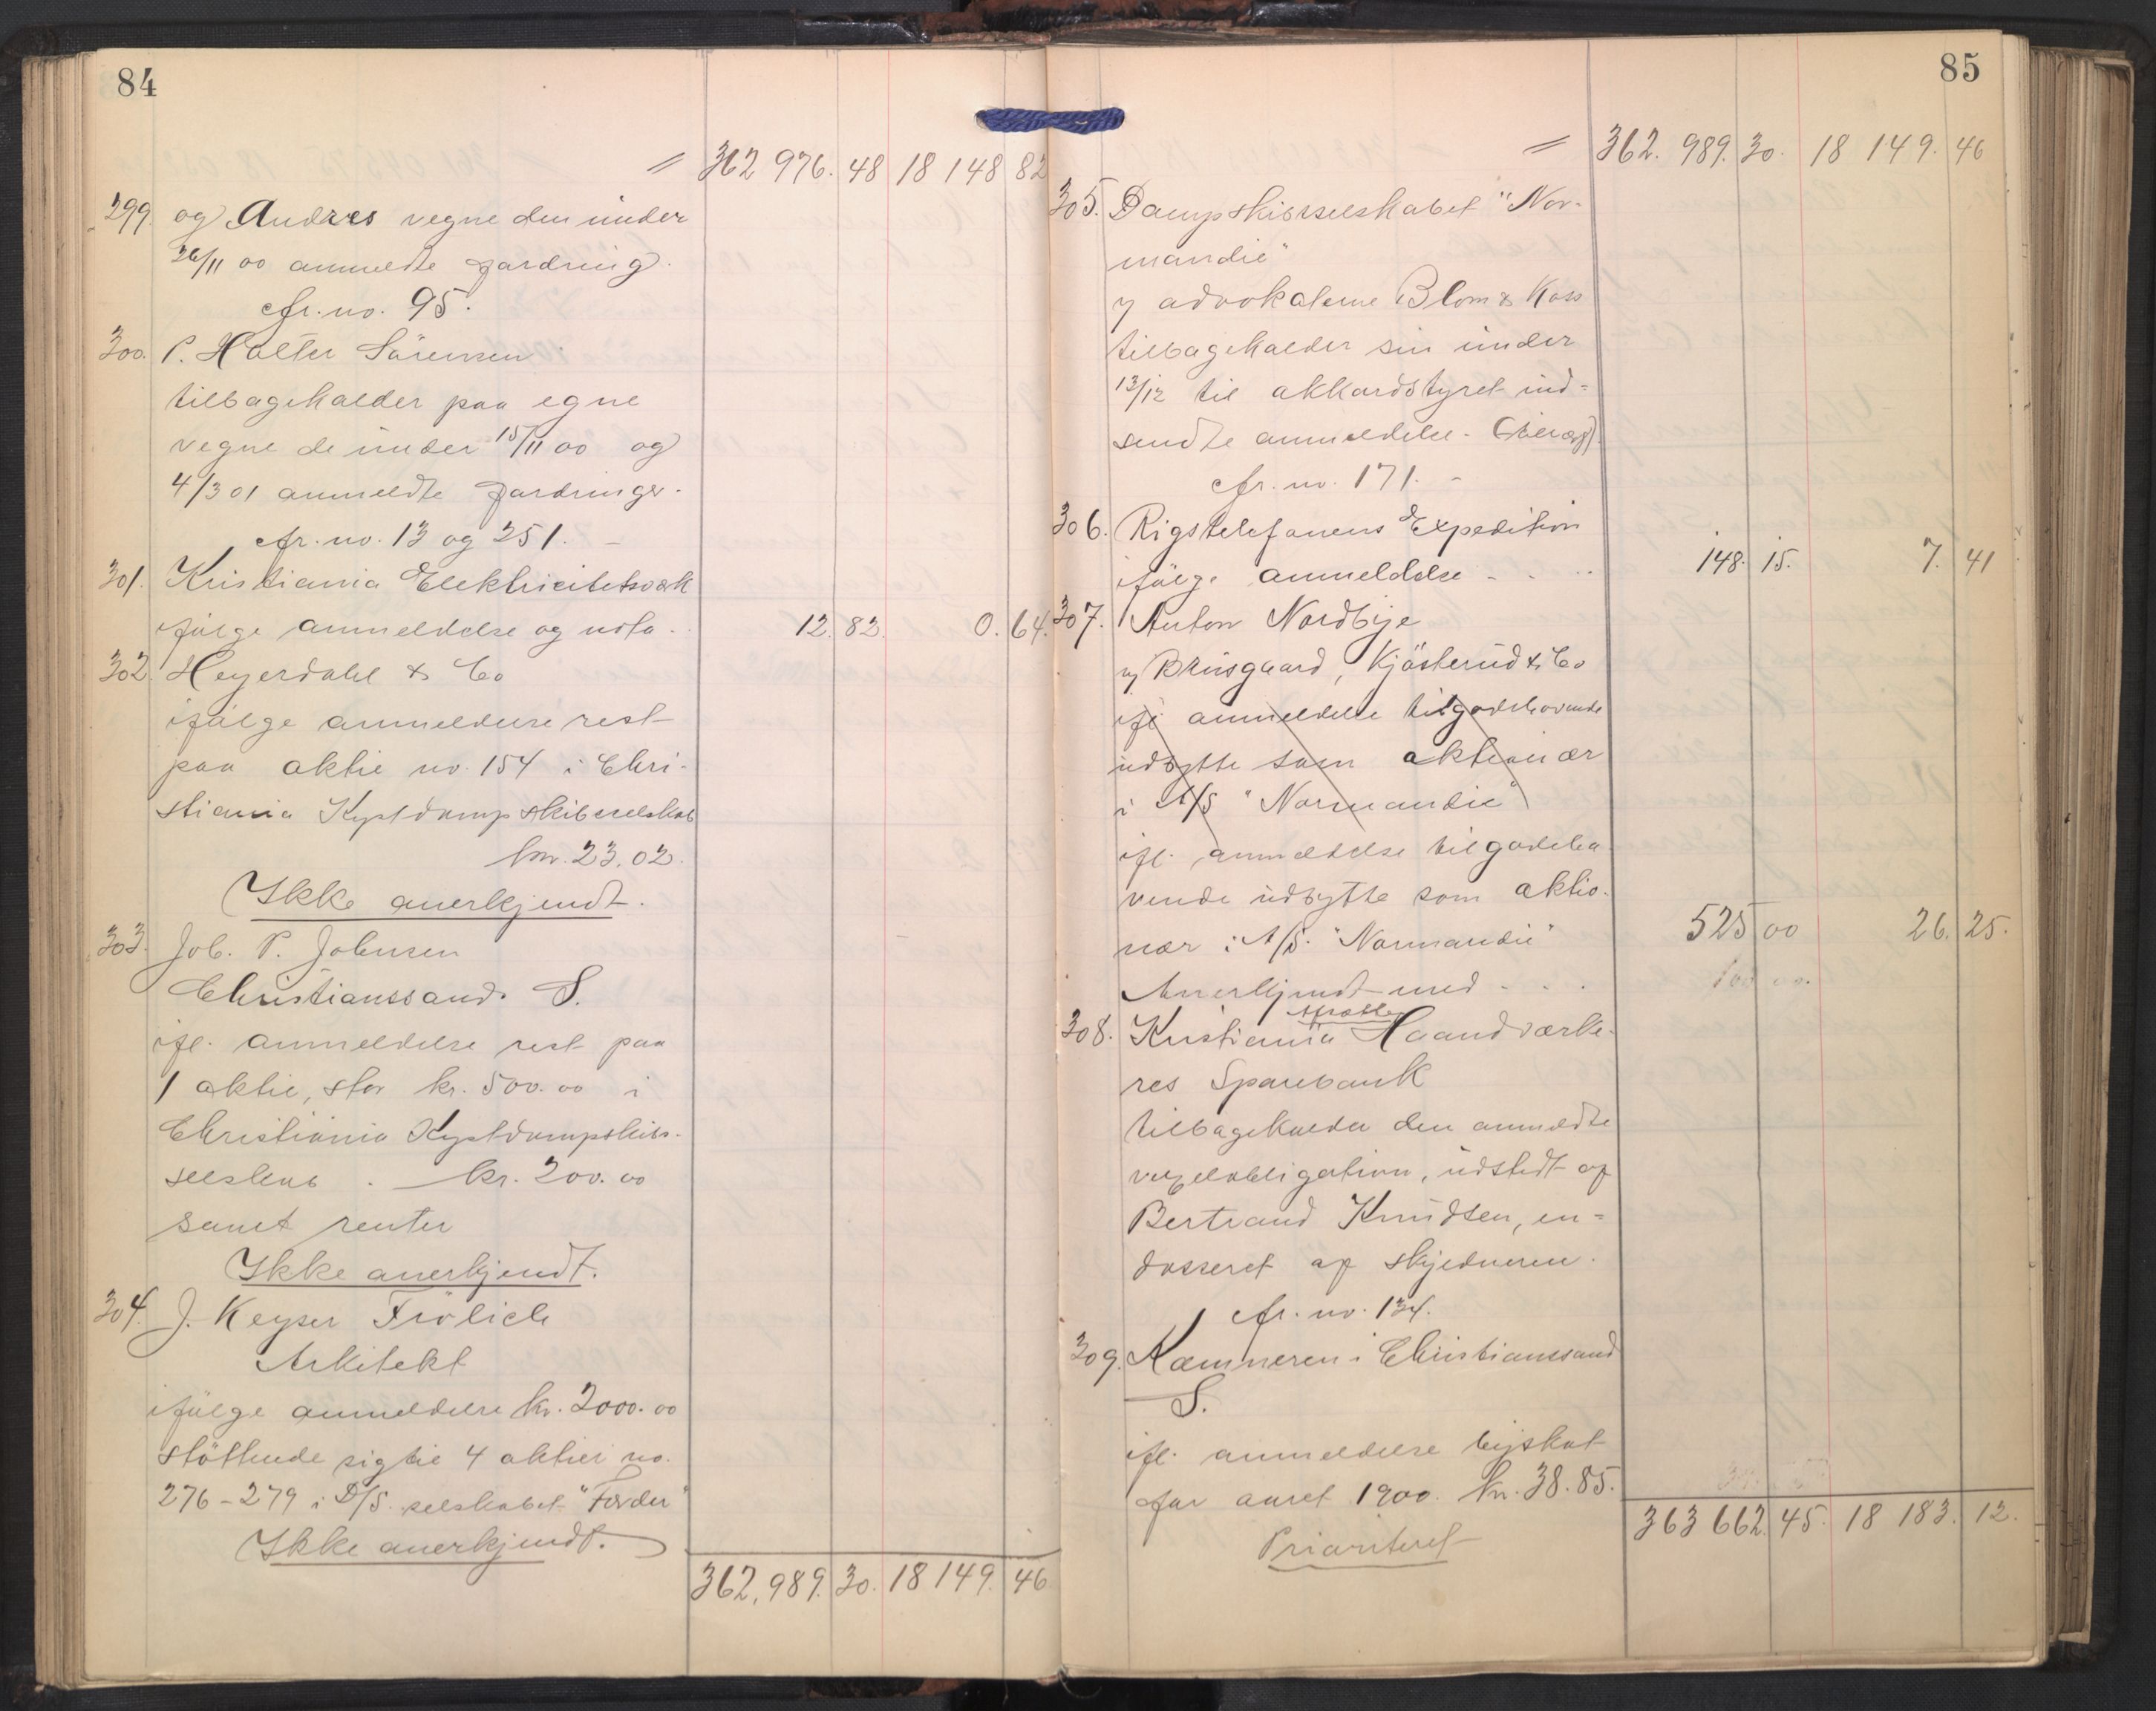 84
〃 362 976. 48 18 148 82
299. og Andres vegne den under
26/11 00 anmeldte fordring.
cfr. no. 95.
300. P. Holter Sörensen
tilbagekalder paa egne
vegne de under 15/11 00 og
4/3 01 anmeldte fordringer.
cfr. no. 13 og 251. –
301. Kristiania Elektricitetsværk
ifölge anmeldelse og nota. 12. 82. 0. 64.
302. Heyerdahl & Co
ifölge anmeldelse rest
paa aktie no. 154 i Chri-
stiania Kystdampskibsselskab
kr. 23.02.
Ikke anerkjendt.
303. Joh. P. Johnsen
Christianssand. S.
ifl. anmeldelse rest paa
1 aktie, stor kr. 500.00 i
Christiania Kystdampskibs-
selskab . – kr. 200.00
samt renter
Ikke anerkjendt.
304. J. Keyser Frölich
Arkitekt
ifölge anmeldelse kr. 2000.00
stöttende sig til 4 aktier no.
276–279 i D/S. selskabet "Færder"
Ikke anerkjendt.
362,989. 30. 18 149. 46
85
〃 362. 989. 30. 18 149. 46
305. Dampskibsselskabet "Nor-
mandie"
v/ advokaterne Blom &
tilbagekalder sin under
13/12 til akkordstyret ind-
sendte anmeldelse.
cfr. no. 171. –
306. Rigstelefonens Expedition
ifölge anmeldelse - . .. 148. 15. 7. 41
307. Anton Nordbye
v/ Kjösterud & Co
ifl anmeldelse tilgodehavende
udbytte som aktionær
i A/S "Normandie"
ifl. anmeldelse tilgodeha
vende udbytte som aktio-
nær i A/S. "Normandie" 525 00 26. 25.
Anerkjendt med - . . 100 00.
308. Kristiania Haandværke-
res Sparebank
tilbagekalder den anmeldte
vexelobligation, udstedt af
Bertrand Knudsen, en-
dosseret af skyldneren.
cfr. no. 134.
309. Kæmneren i Christianssand
S.
ifl. anmeldelse byskat
for aaret 1900. kr. 38.85.
Prioriteret
363 662. 45. 18 183. 12.